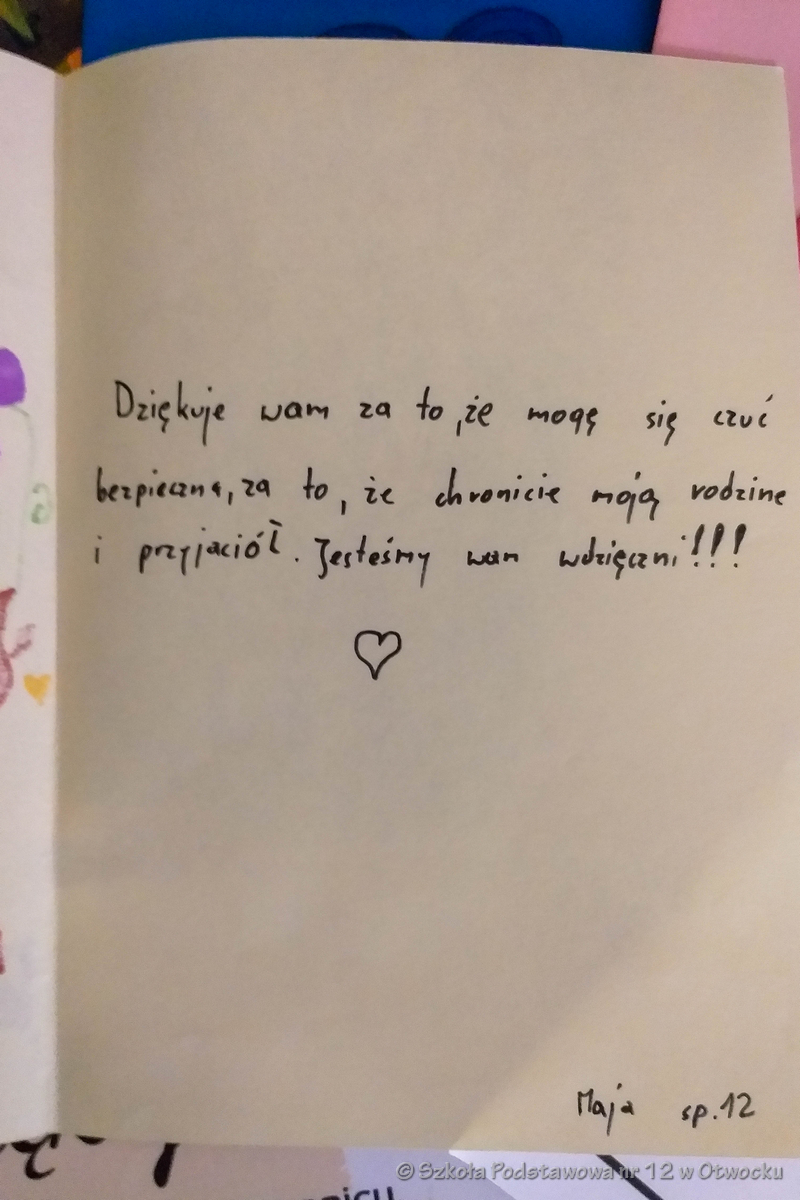 Dziękuje wam za to, że mogę się czuć
bezpieczna, za to, że chronicie moją rodzine
i przyjaciół. Jesteśmy wam wdzięczni!!!
Maja sp.12
© Szkoła Podstawowa nr 12 w Otwocku